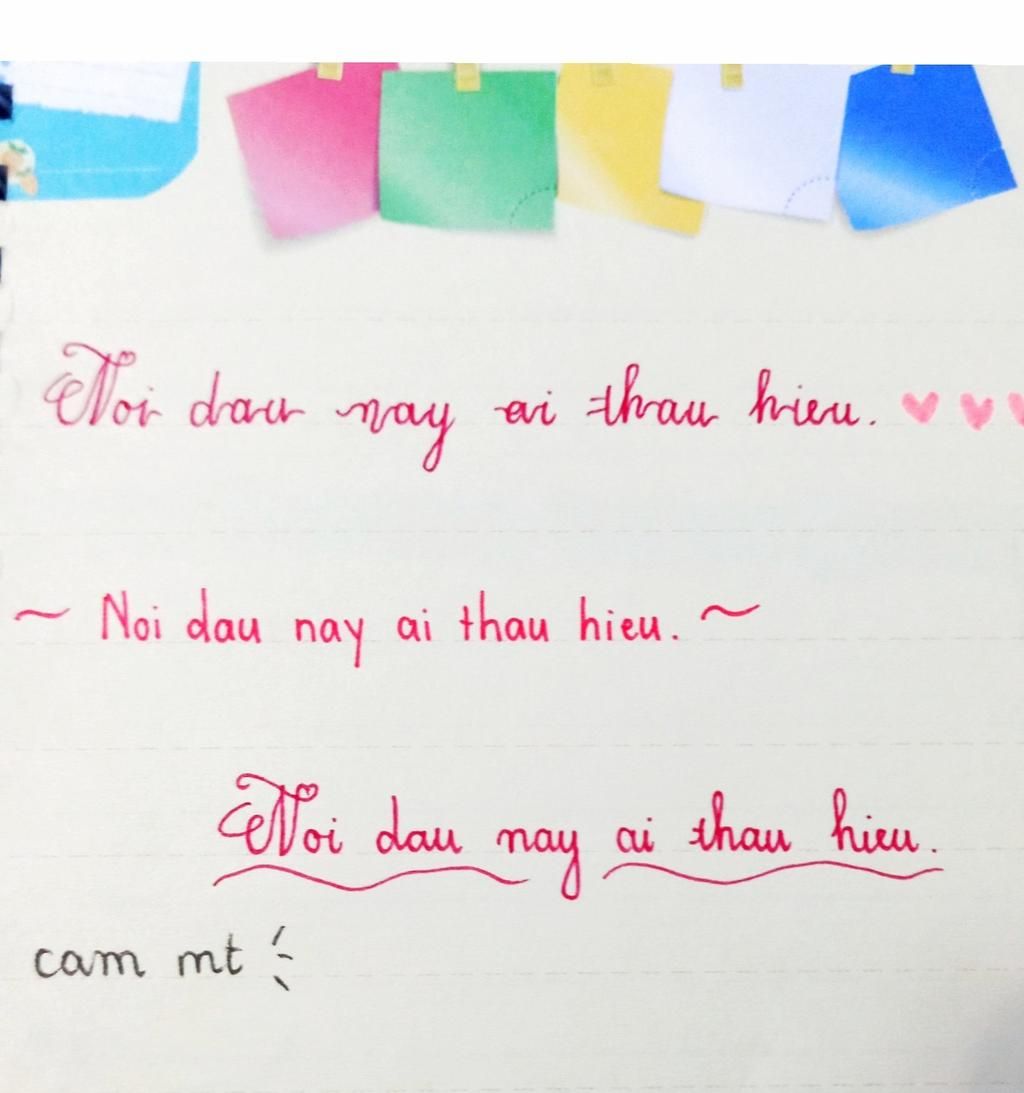 Noi dau nay ai thau hieu.
~ Noi dau nay ai thau hieu. ~
Noi dau nay ai thau hieu.
cam mt